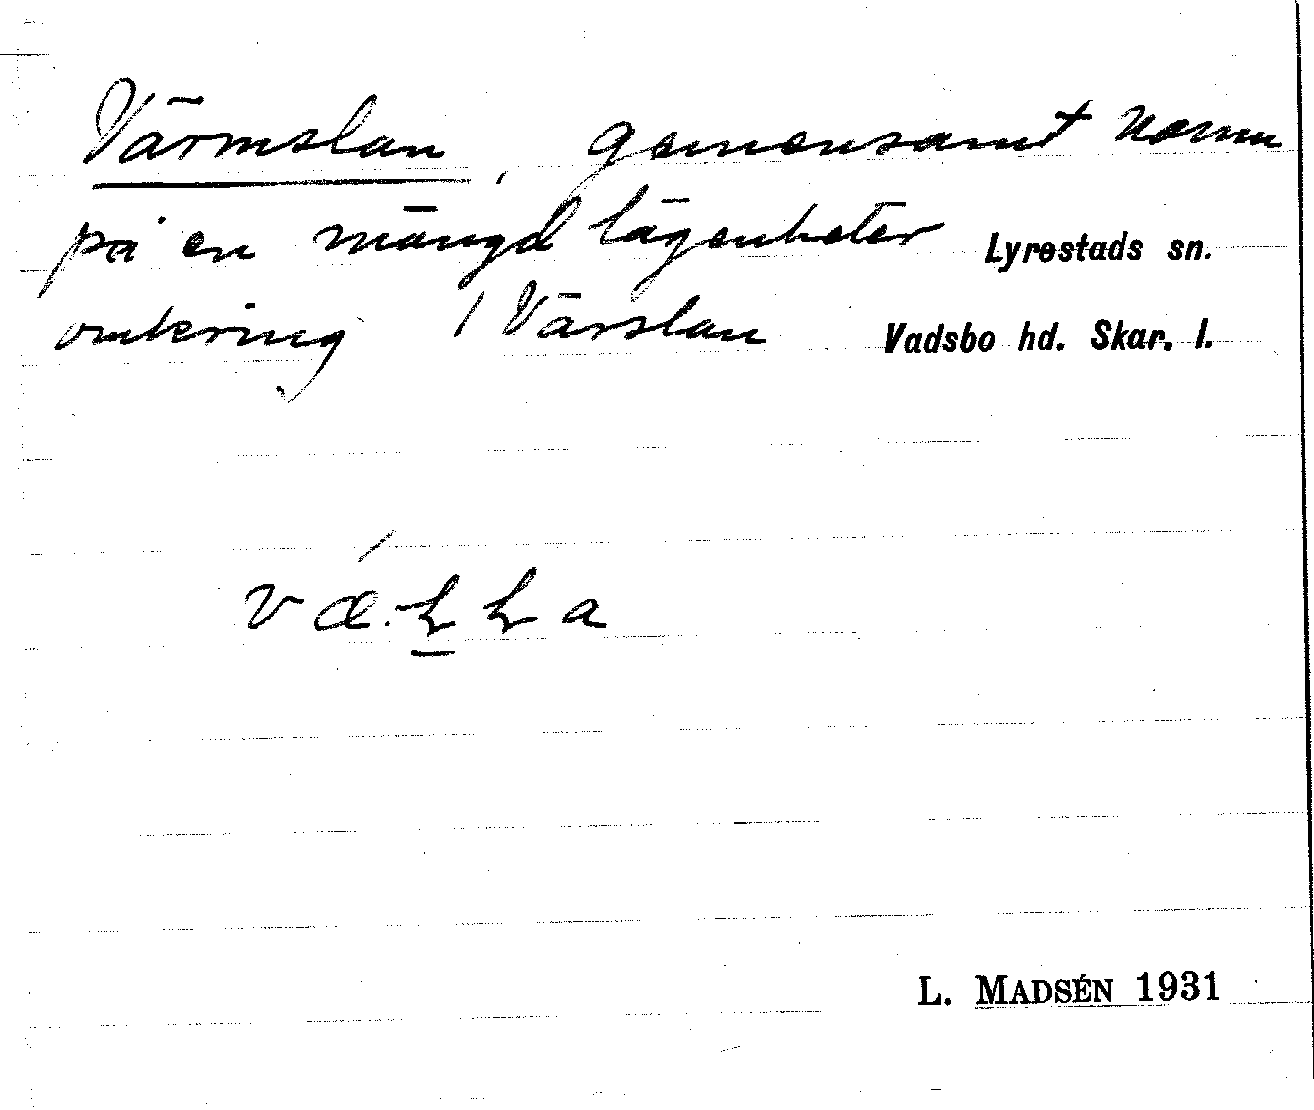 Värmslan, gemensamt namn
på en mängd lägenheter Lyrestads sn.
omkring 1 Värslan Vadsbo hd. Skar. l.
L. MADSÉN 1931